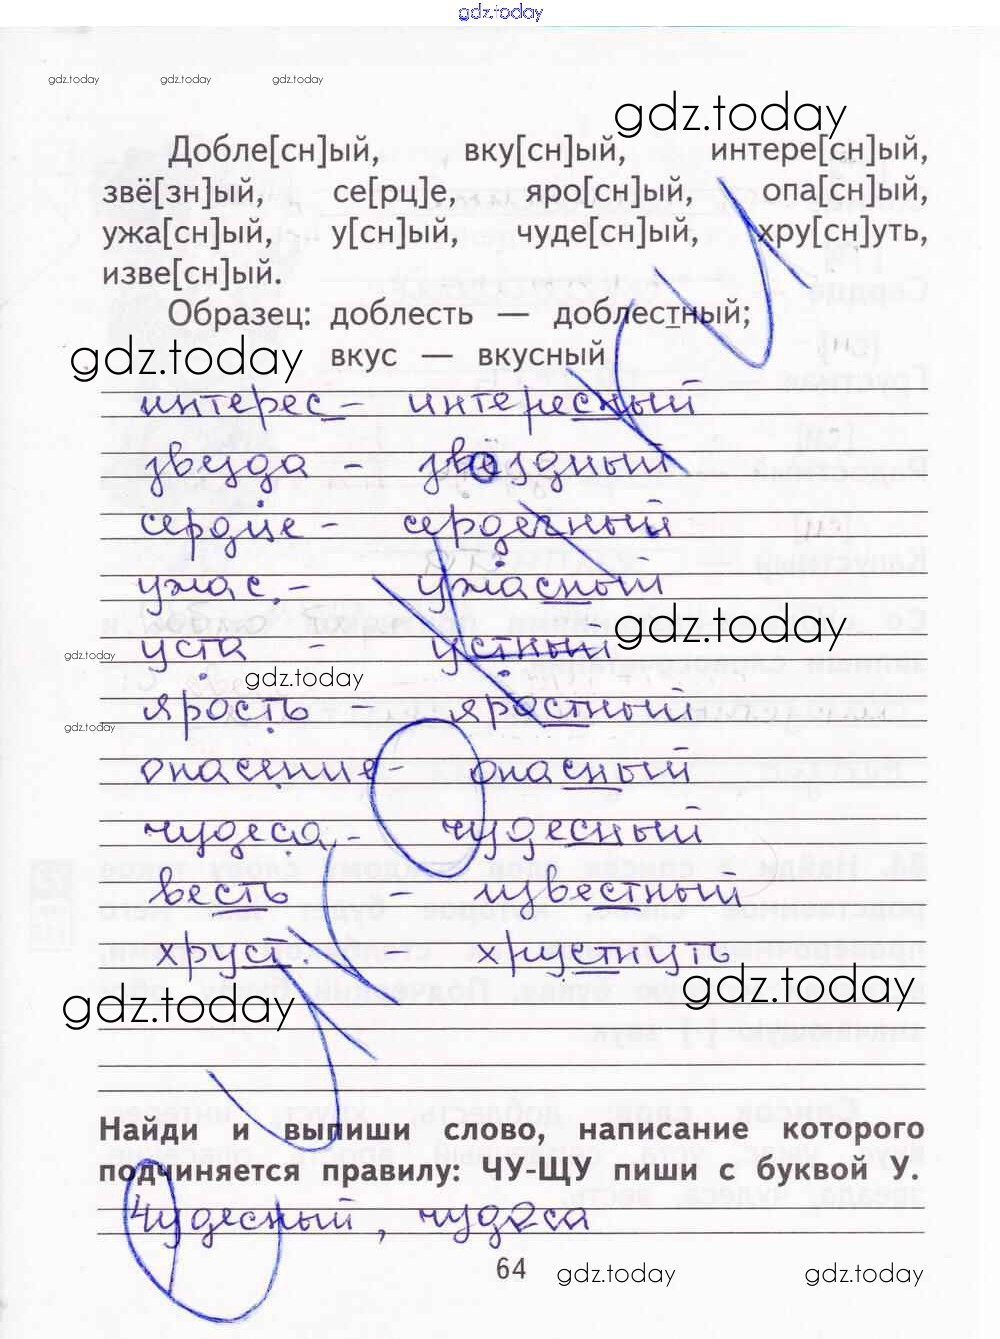 gdz.today
gdz.today gdz.today gdz.today
gdz.today
Добле[сн]ый, вку[сн]ый, интере[сн]ый,
звё[зн]ый, се[рц]е, яро[сн]ый, опа[сн]ый,
ужа[сн]ый, у[сн]ый, чуде[сн]ый, хру[сн]уть,
изве[сн]ый.
Образец: доблесть — доблестный;
gdz.today вкус — вкусный
интерес - интересный
звезда - звёздный
сердце - сердечный
ужас - ужасный
gdz.today
уста - устный
gdz.today
gdz.today
ярость - яростный
gdz.today
опасение - опасный
чудеса - чудесный
весть - известный
хруст - хрустнуть
gdz.today
gdz.today
Найди и выпиши слово, написание которого
подчиняется правилу: ЧУ-ЩУ пиши с буквой У.
Чудесный, чудеса
64
gdz.today gdz.today